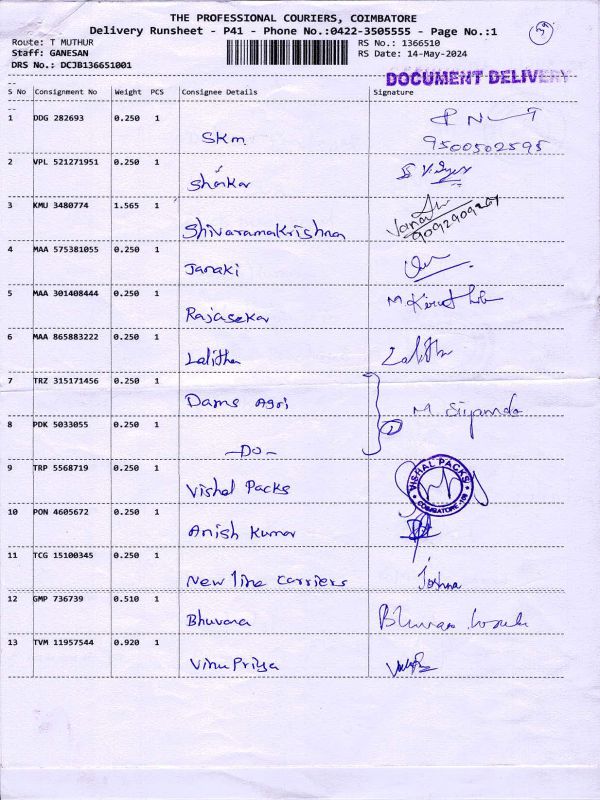 THE PROFESSIONAL COURIERS, COIMBATORE
Delivery Runsheet - P41 - Phone No.:0422-3505555 - Page No.:1
Route: T MUTHUR
RS No.: 1366510
Staff: GANESAN
RS Date: 14-May-2024
DRS No.: DCJB136651001
DOCUMENT DELIVERY
S No Consignment No Weight PCS Consignee Details Signature
1 DDG 282693 0.250 1
SKM 9500502595
2 VPL 521271951 0.250 1
Shankar
3 KMU 3480774 1.565 1
Shivaramakrishna
9092909207
4 MAA 575381055 0.250 1
Janaki
5 MAA 301408444 0.250 1
Rajasekar
6 MAA 865883222 0.250 1
Lalitha Lalitha
7 TRZ 315171456 0.250 1
Dams Agri
8 PDK 5033055 0.250 1
-DO-
9 TRP 5568719 0.250 1
Vishal Packs
VISHAL PACKS
COIMBATORE
10 PON 4605672 0.250 1
Anish Kumar
11 TCG 15100345 0.250 1
New line carriers Joshna
12 GMP 736739 0.510 1
Bhuvana
13 TVM 11957544 0.920 1
Vinu Priya